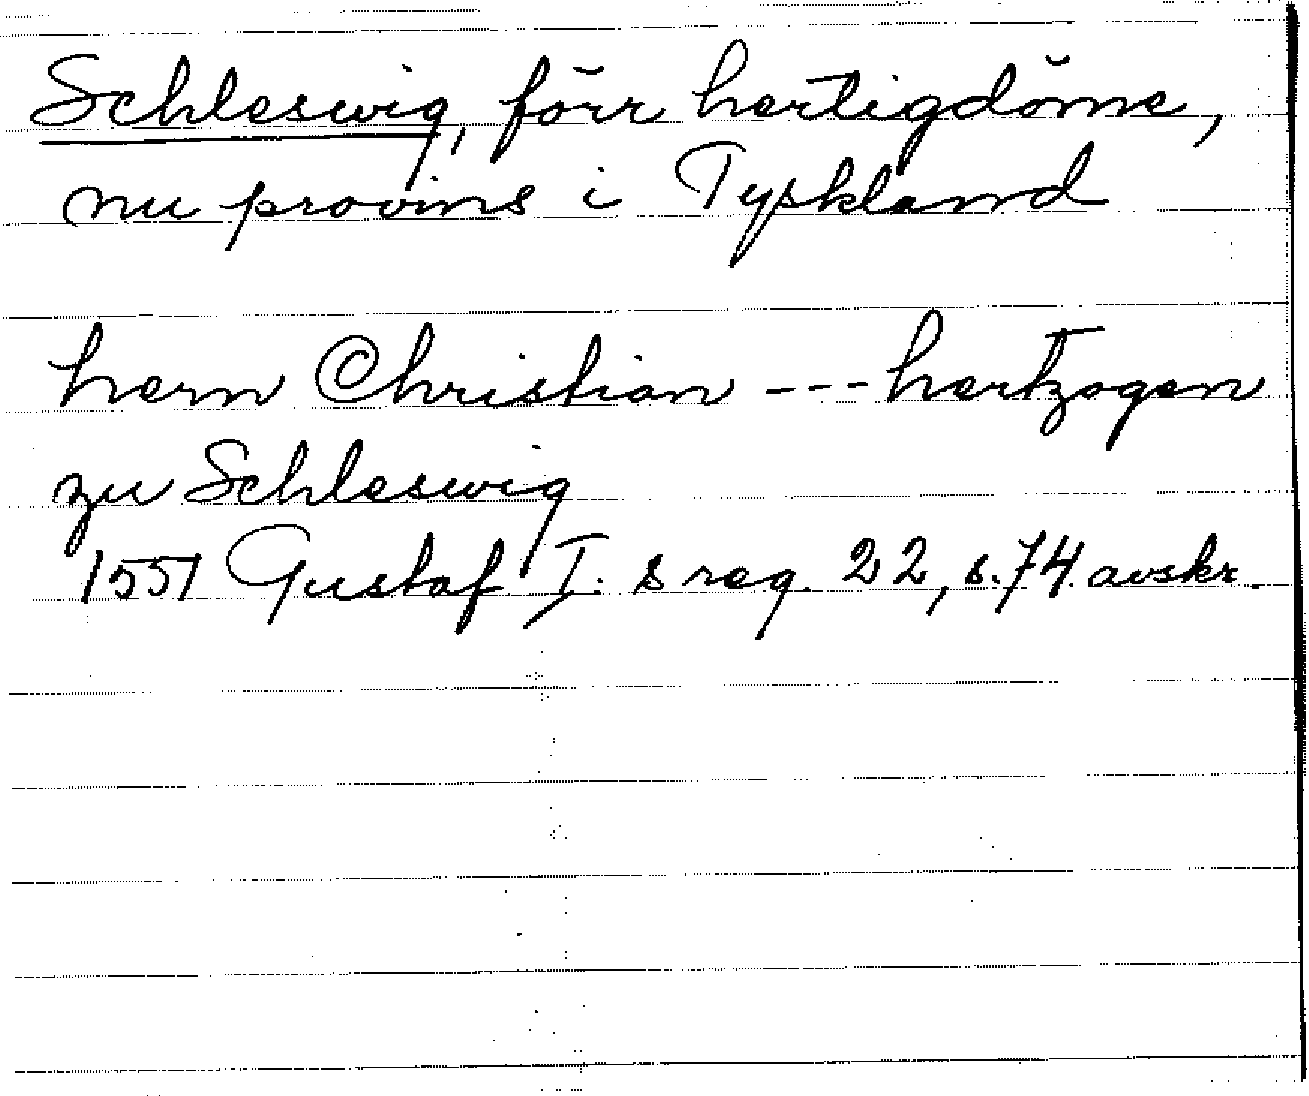 Schleswig, förr hertigdöme,
nu provins i Tyskland
hern Christian --- hertzogen
zu Schleswig
1551 Gustaf I:s reg. 22, s. 74. avskr.